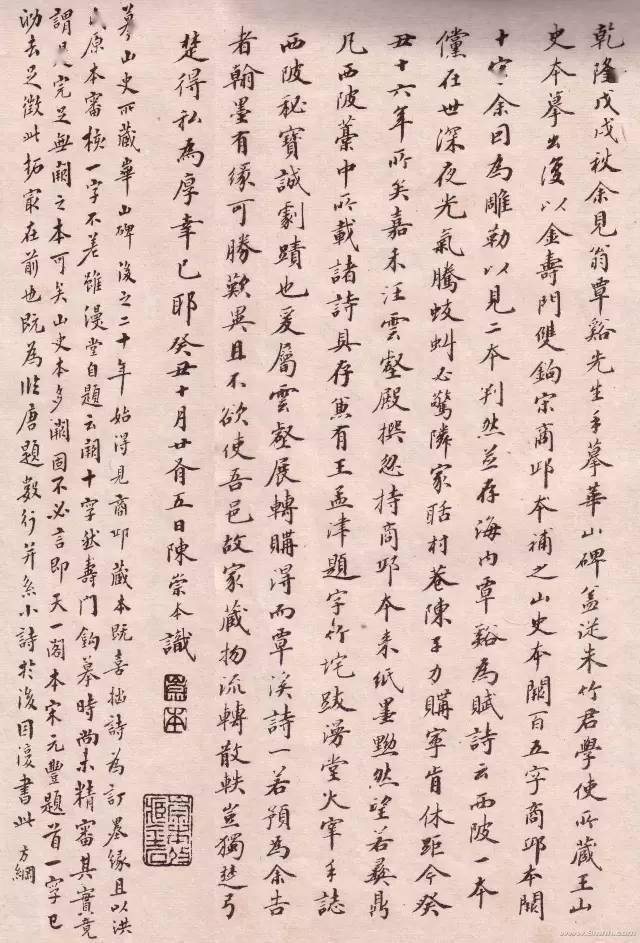 乾隆戊戌秋余見翁覃谿先生手摹華山碑蓋從朱竹君學使所藏王山
史本摹出復以金壽門雙鉤宋商邱本補之山史本闕百五字商邱本闕
十字余因為雕勒以見二本判然並存海內覃谿為賦詩云西陂一本
儻在世深夜光氣騰蛟虯必驚隣家聒村巷陳子力購寧肯休距今癸
丑十六年所矣嘉禾汪雲壑殿撰忽持商邱本來紙墨黝然望若彝鼎
凡西陂藁中所載諸詩具存兼有王孟津題字竹垞跋漫堂火宰手誌
西陂秘寶誠劇蹟也爰屬雲壑展轉購得而覃溪詩一若預為余告
者翰墨有緣可勝歎異且不欲使吾邑故家藏物流轉散軼豈獨楚弓
楚得私為厚幸已耶癸丑十月廿有五日陳崇本識
崇本
摹山史所藏華山碑後之二十年始得見商邱藏本既喜拙詩為訂墨緣且以洪
原本審校一字不差雖漫堂自題云闕十字然壽門鉤摹時尚未精審其實竟
謂是完足無闕之本可矣山史本多闕固不必言即天一閣本宋元豐題首一字已
泐去足徵此拓最在前也既為臨唐題數行并系小詩於後因復書此 方綱